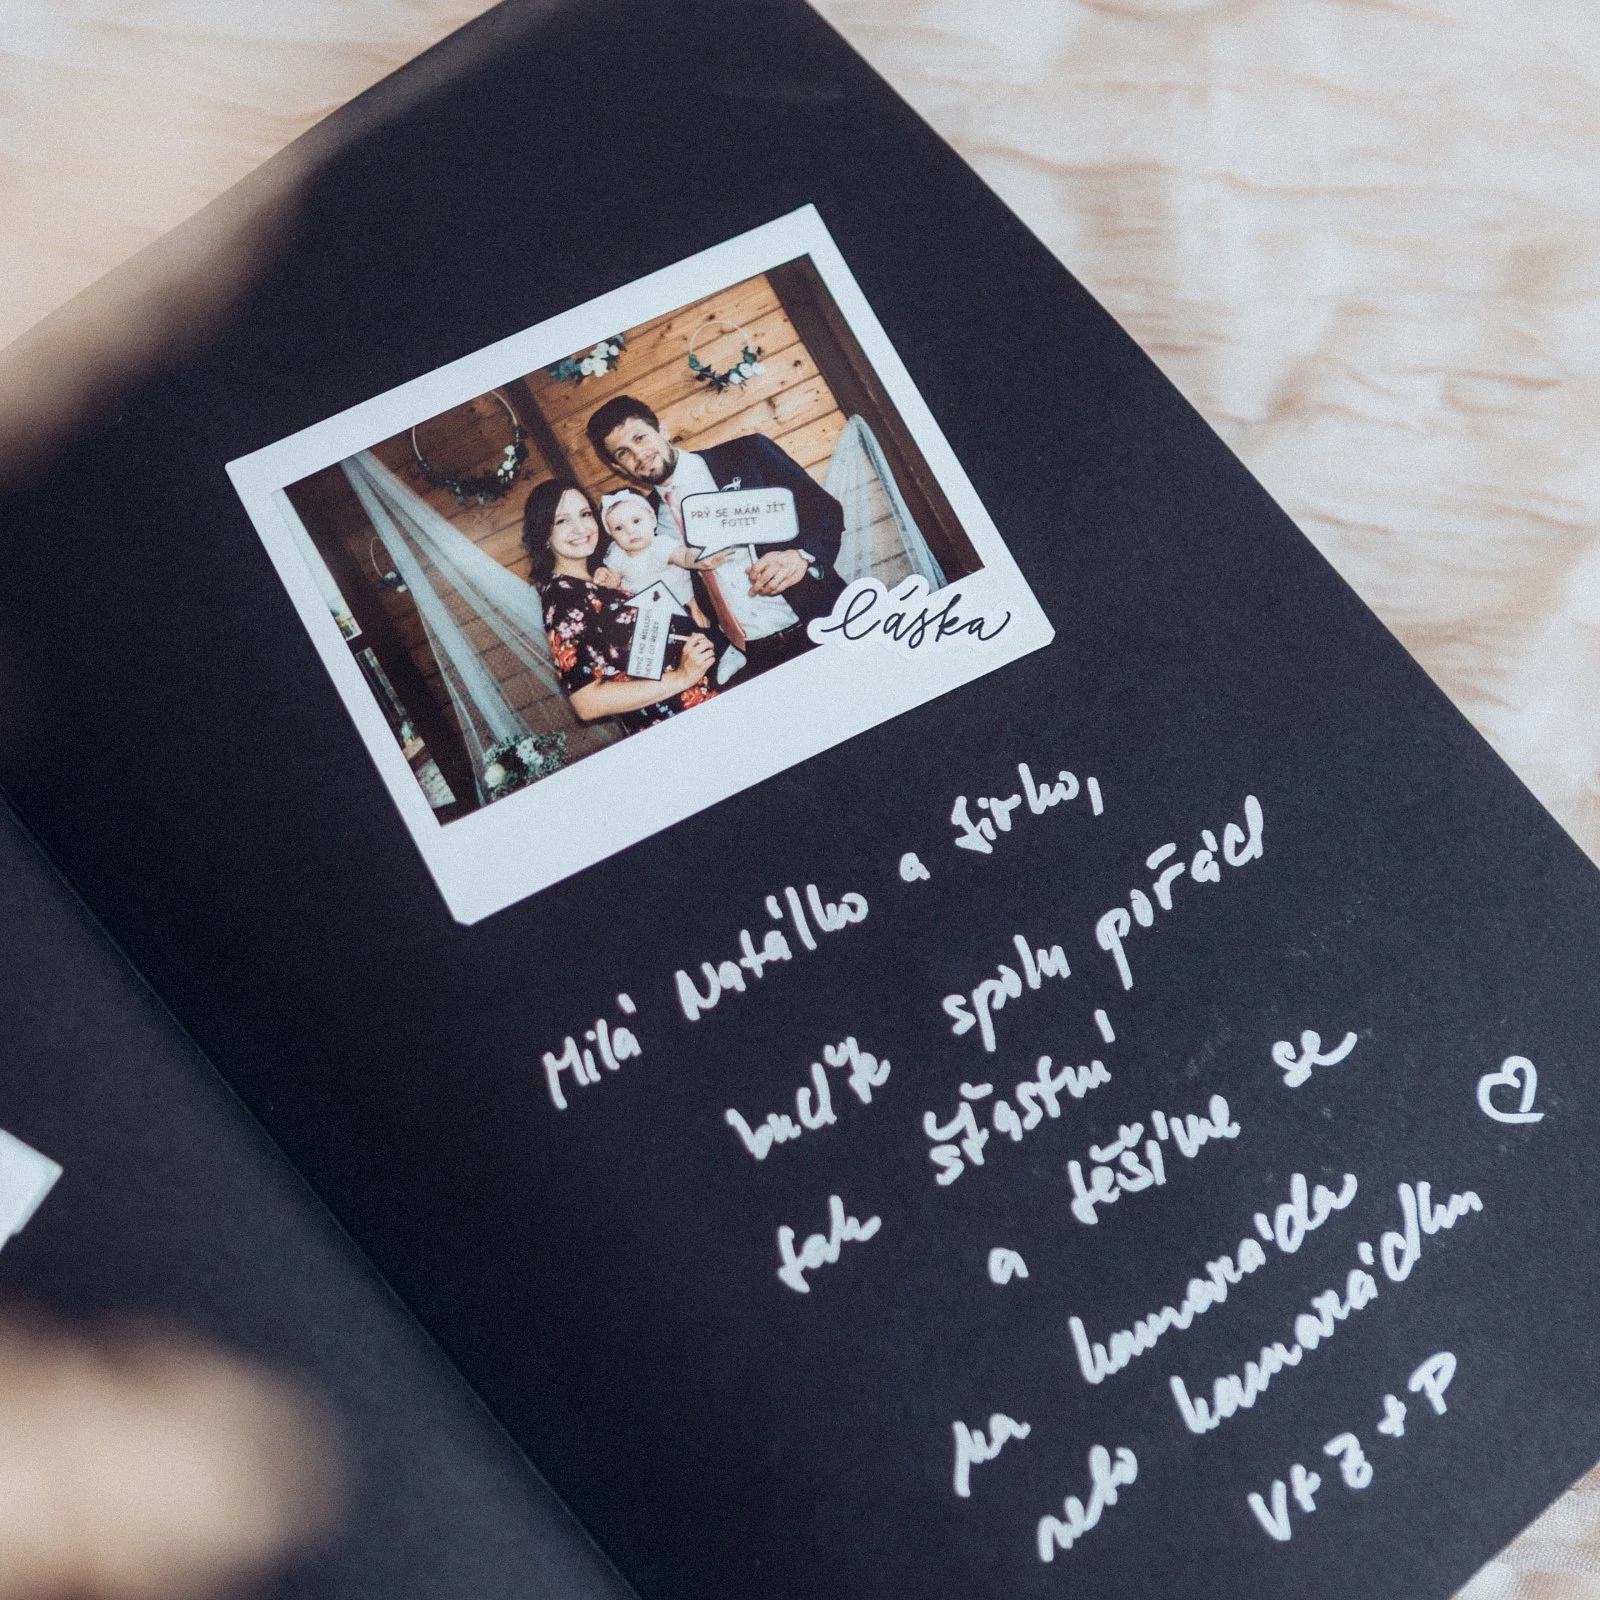 PRÝ SE MÁM JÍT
FOTIT
láska
Milá Natálko a Jirko,
buďte spolu pořád
tak šťastní
a těšíme se
na kamaráda
nebo kamarádku
V + Z + P